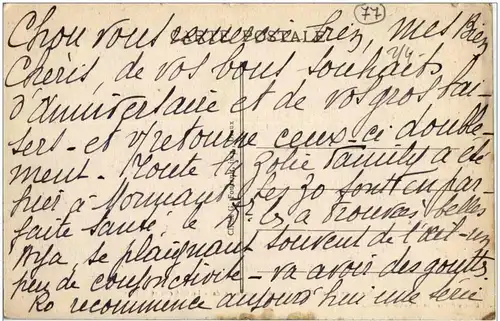 77
CARTE POSTALE
Chou vous remercie bien, mes Bien
Chéris, de vos bons souhaits
d'anniversaire et de vos gros bai-
sers - et v/ retourne ceux-ci double-
ment. Toute la Zolie Family a été
hier à Mormant. Les zo sont en par-
faite santé. Le les a trouvés belles
se plaignant souvent de l'œil - un
peu de conjonctivite - va avoir des gouttes
Ko recommence aujourd'hui une série